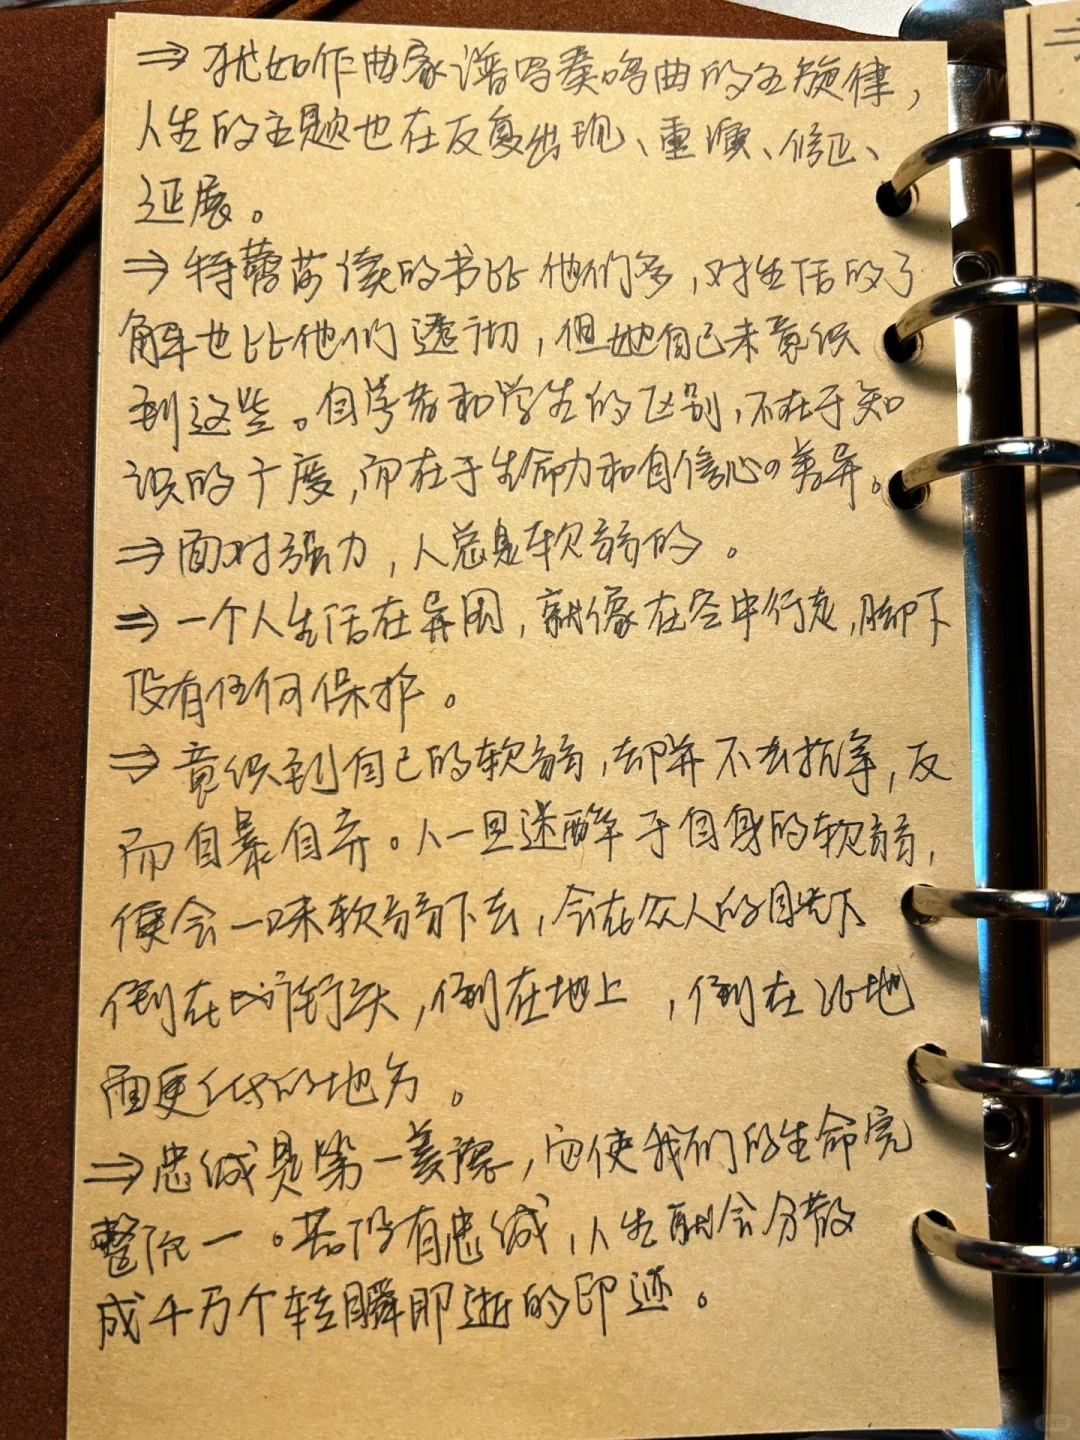 ⇒ 犹如作曲家谱写奏鸣曲的主旋律，
人生的主题也在反复出现、重演、修正、
延展。
⇒ 特蕾莎读的书比他们多，对生活的了
解也比他们透彻，但她自己未意识
到这些。自学者和学生的区别，不在于知
识的广度，而在于生命力和自信心的差异。
⇒ 面对强力，人总是软弱的。
⇒ 一个人生活在异国，就像在空中行走，脚下
没有任何保护。
⇒ 意识到自己的软弱，却并不去抗争，反
而自暴自弃。人一旦迷醉于自身的软弱，
便会一味软弱下去，会在众人的目光下
倒在街头，倒在地上，倒在比地
面更低的地方。
⇒ 忠诚是第一美德，它使我们的生命完
整统一。若没有忠诚，人生就会分散
成千万个转瞬即逝的印迹。